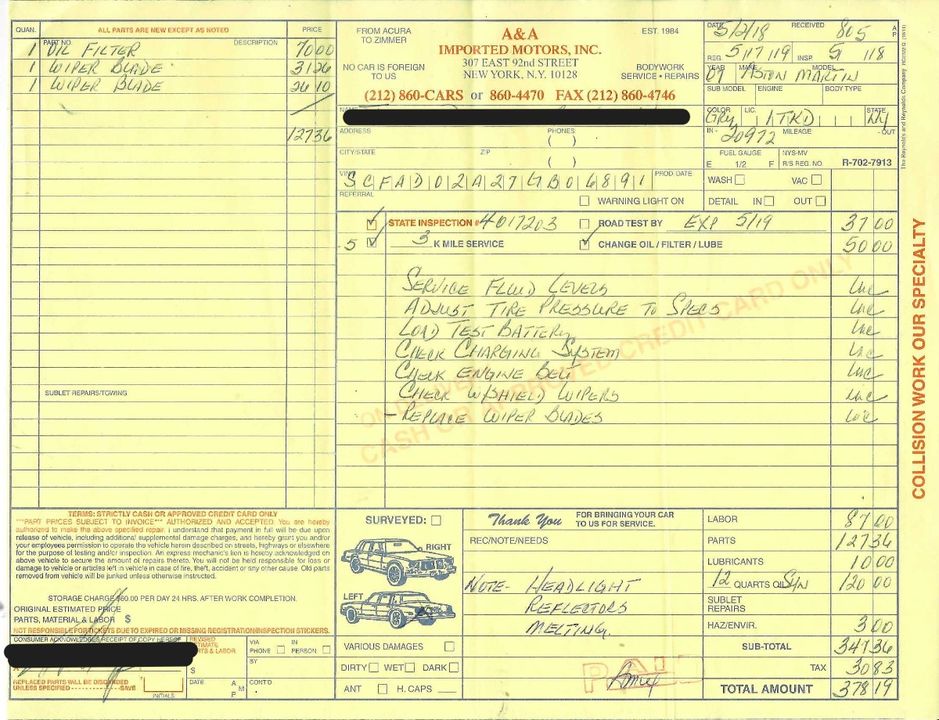 QUAN. ALL PARTS ARE NEW EXCEPT AS NOTED PRICE
PART NO. DESCRIPTION
1 OIL FILTER 70 00
1 WIPER BLADE 31 26
1 WIPER BLADE 26 10
127 36
SUBLET REPAIRS/TOWING
FROM ACURA TO ZIMMER
NO CAR IS FOREIGN TO US
A&A
IMPORTED MOTORS, INC.
307 EAST 92nd STREET
NEW YORK, N.Y. 10128
EST. 1984
BODYWORK
SERVICE • REPAIRS
(212) 860-CARS or 860-4470 FAX (212) 860-4746
DATE 5/2/18 RECEIVED 805 A P
REG. 5/17/19 INSP. 5 118
YEAR 07 MAKE ASTON MARTIN MODEL
SUB MODEL ENGINE BODY TYPE
COLOR GRY LIC. STATE NY
IN - 20972 MILEAGE - OUT
FUEL GAUGE NYS-MV
E 1/2 F R/S REG. NO. R-702-7913
NAME
ADDRESS PHONES
( )
CITY/STATE ZIP
( )
VIN SCFAD02A27GB06891 PROD. DATE
WASH VAC
REFERRAL WARNING LIGHT ON DETAIL IN OUT
STATE INSPECTION # 4017203 ROAD TEST BY EXP 5/19 37 00
5 3 K MILE SERVICE CHANGE OIL / FILTER / LUBE 50 00
SERVICE FLUID LEVELS INC
ADJUST TIRE PRESSURE TO SPECS INC
LOAD TEST BATTERY INC
CHECK CHARGING SYSTEM INC
CHECK ENGINE BELT INC
CHECK W/SHIELD WIPERS INC
- REPLACE WIPER BLADES INC
CASH OR APPROVED CREDIT CARD ONLY
COLLISION WORK OUR SPECIALTY
TERMS: STRICTLY CASH OR APPROVED CREDIT CARD ONLY
***PART PRICES SUBJECT TO INVOICE*** AUTHORIZED AND ACCEPTED. You are hereby
authorized to make the above specified repair. I understand that payment in full will be due upon
release of vehicle, including additional supplemental damage charges, and hereby grant you and/or
your employees permission to operate the vehicle herein described on streets, highways or elsewhere
for the purpose of testing and/or inspection. An express mechanic's lien is hereby acknowledged on
above vehicle to secure the amount of repairs thereto. You will not be held responsible for loss or
damage to vehicle or articles left in vehicle in case of fire, theft, accident or any other cause. Old parts
removed from vehicle will be junked unless otherwise instructed.
STORAGE CHARGE PER DAY 24 HRS. AFTER WORK COMPLETION.
ORIGINAL ESTIMATED PRICE
PARTS, MATERIAL & LABOR $
NOT RESPONSIBLE FOR TICKETS DUE TO EXPIRED OR MISSING REGISTRATION/INSPECTION STICKERS.
CONSUMER ACKNOWLEDGES RECEIPT OF COPY HEREOF
REVISED ESTIMATE PARTS & LABOR
$
VIA PHONE IN PERSON
BY
REPLACED PARTS WILL BE DISCARDED
UNLESS SPECIFIED SAVE INITIALS
DATE A M P CONT'D
SURVEYED:
RIGHT
LEFT
VARIOUS DAMAGES
DIRTY WET DARK
ANT H. CAPS
Thank You FOR BRINGING YOUR CAR TO US FOR SERVICE.
REC/NOTE/NEEDS
NOTE- HEADLIGHT
REFLECTORS
MELTING.
PAID
LABOR 87 00
PARTS 127 36
LUBRICANTS 10 00
12 QUARTS OIL SYN 120 00
SUBLET REPAIRS
HAZ/ENVIR. 3 00
SUB-TOTAL 347 36
TAX 30 83
TOTAL AMOUNT 378 19